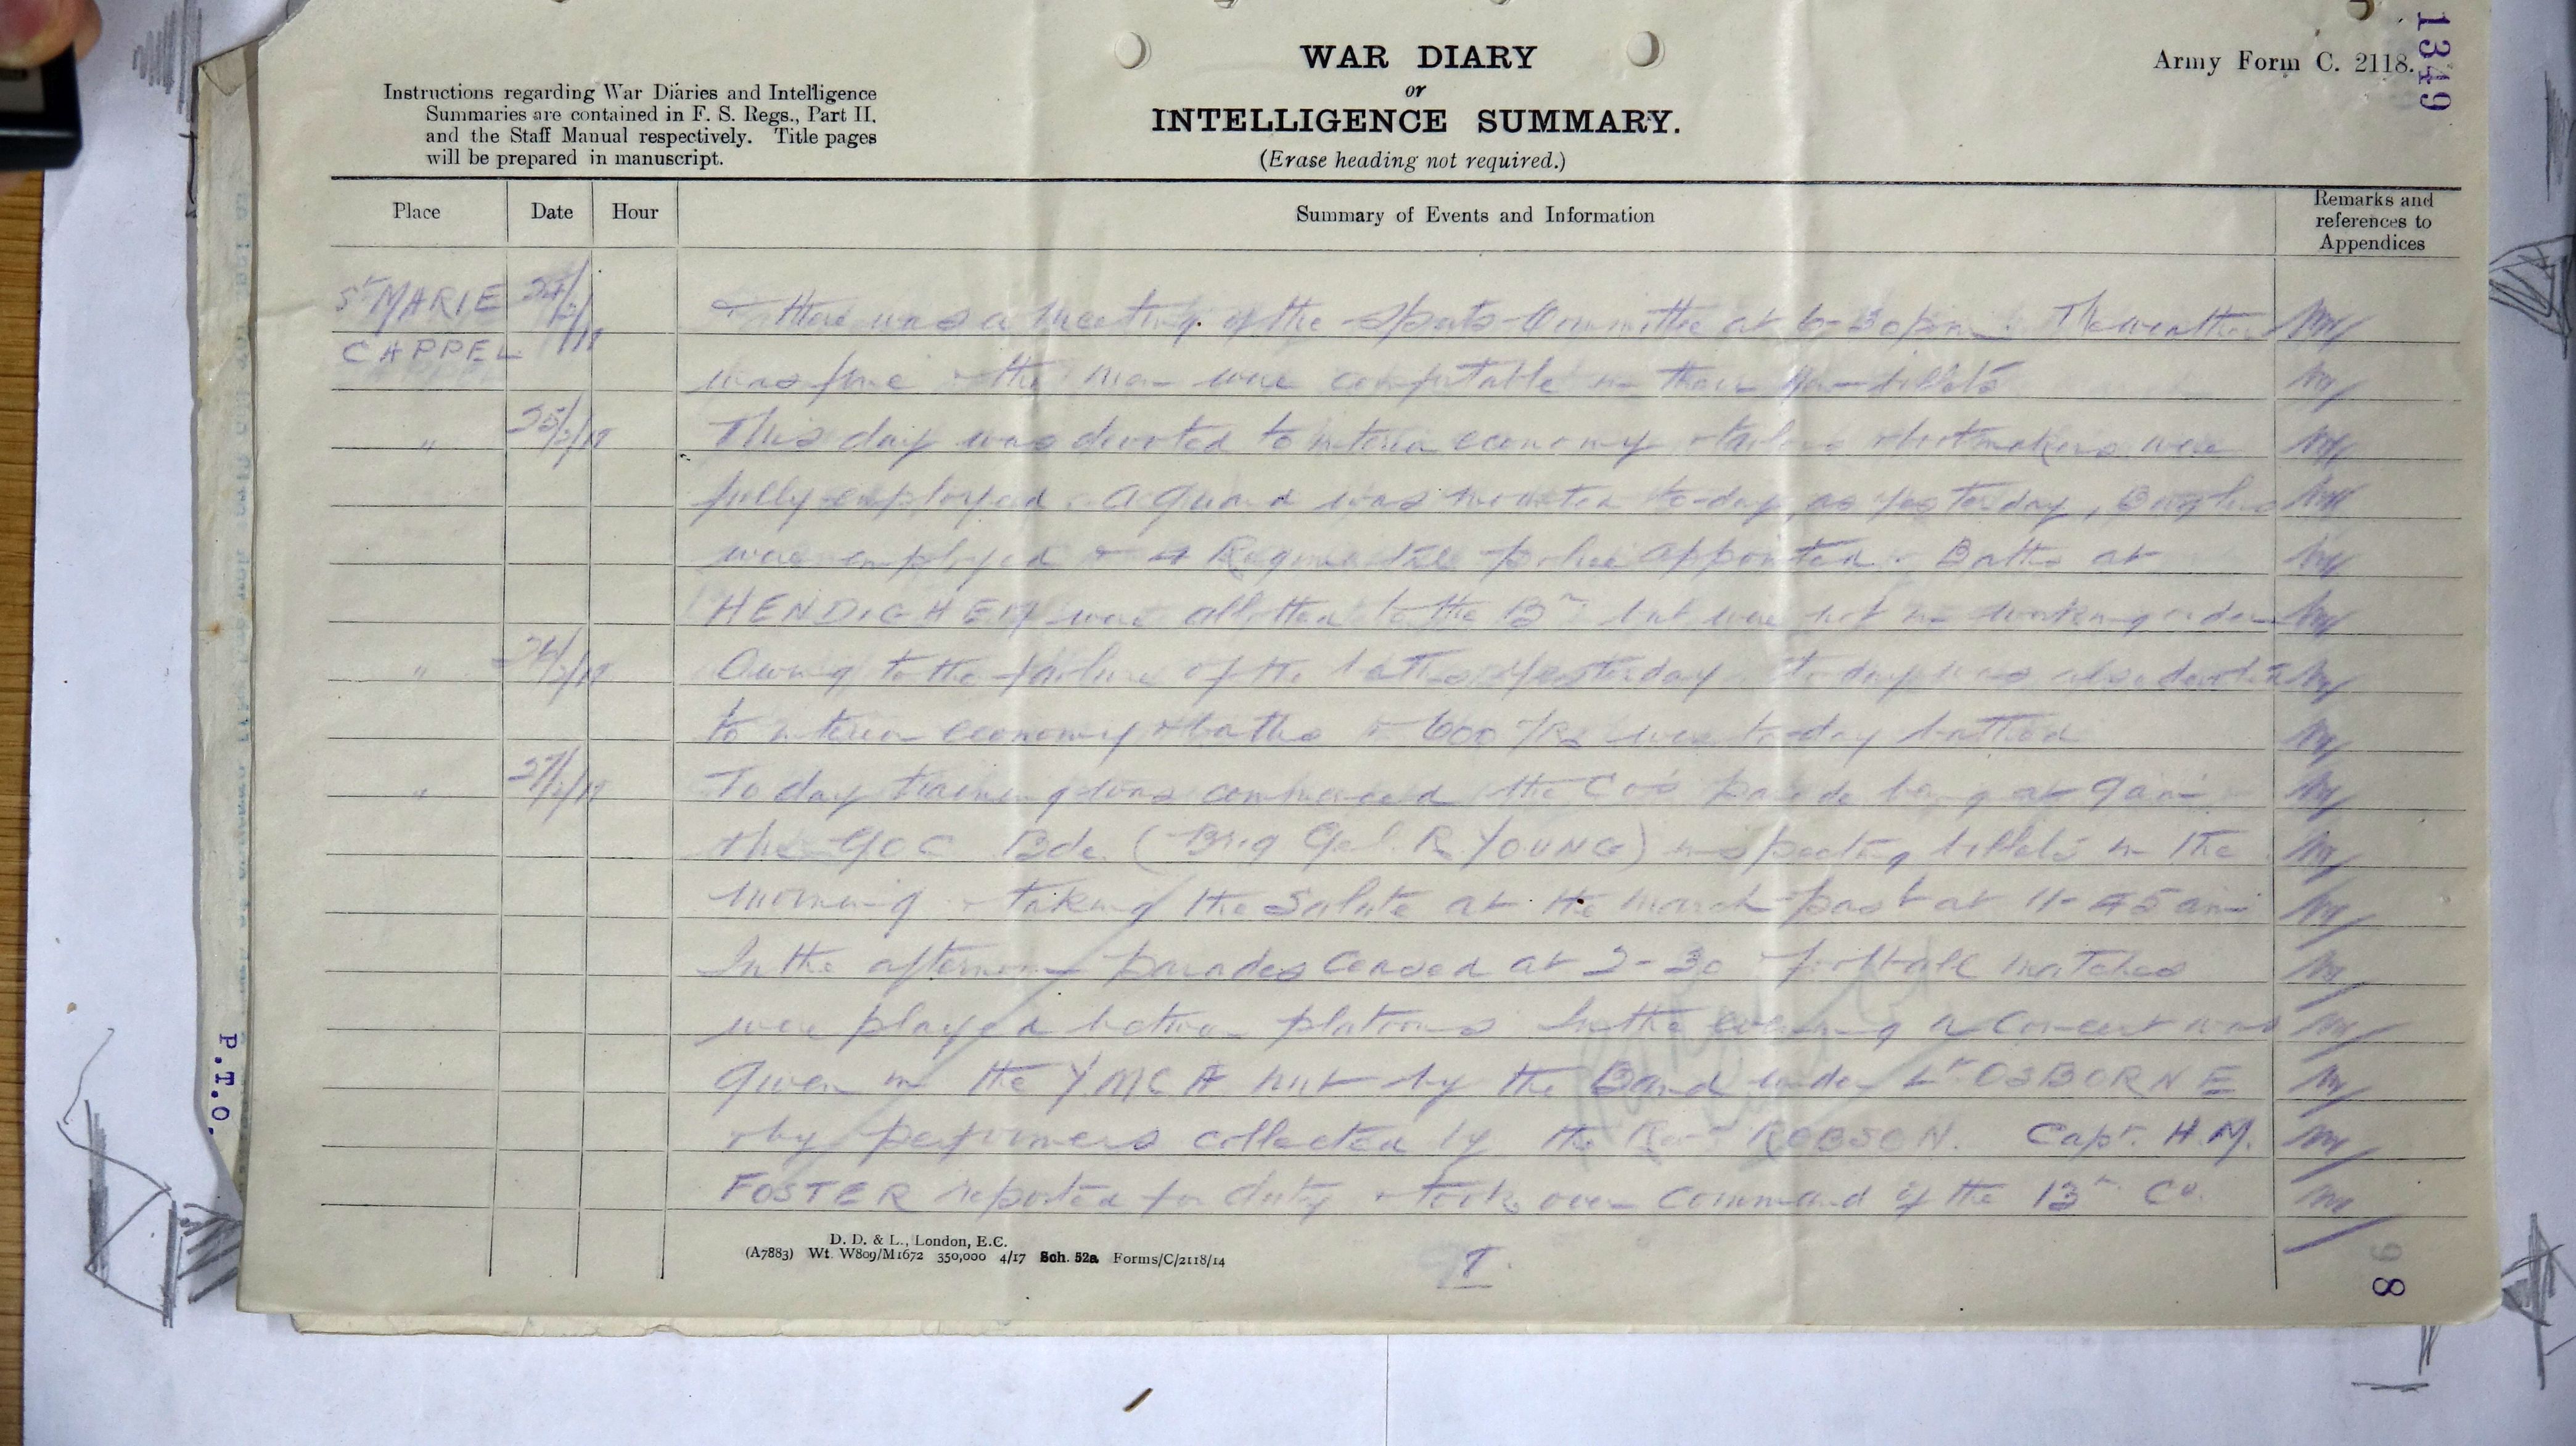 1349
WAR DIARY
or
INTELLIGENCE SUMMARY.
(Erase heading not required.)
Army Form C. 2118.
Instructions regarding War Diaries and Intelligence
Summaries are contained in F. S. Regs., Part II.
and the Staff Manual respectively. Title pages
will be prepared in manuscript.
Place Date Hour Summary of Events and Information Remarks and references to Appendices
St MARIE 24/2/19 There was a meeting of the Sports Committee at 6-30 pm. The weather
CAPPEL was fine & the men were comfortable in their billets
" 25/2/19 This day was devoted to interior economy & tailors & bootmakers were
fully employed. A guard was mounted to-day, as yesterday, Buglers
were employed & 4 Regimental police appointed. Baths at
HENDIGHEM were allotted to the Bn but were not in working order
" 26/2/19 Owing to the failure of the baths yesterday to day was also devoted
to interior economy & baths & 600 ORs were to-day bathed
" 27/2/19 To day training was commenced the CO's parade being at 9 am
the GOC Bde. (Brig Gel. R. YOUNG) inspecting billets in the
morning & taking the Salute at the march past at 11-45 am
In the afternoon parades ceased at 2-30 & football matches
were played between platoons In the evening a concert was
given in the Y.M.C.A hut by the Band under Lt OSBORNE
& by performers collected by the Revd ROBSON. Capt. H.M.
FOSTER reported for duty & took over command of the 13th Co.
D. D. & L., London, E.C.
(A7883) Wt. W809/M1672 350,000 4/17 Sch. 52a Forms/C/2118/14
I.
P.T.O.
8